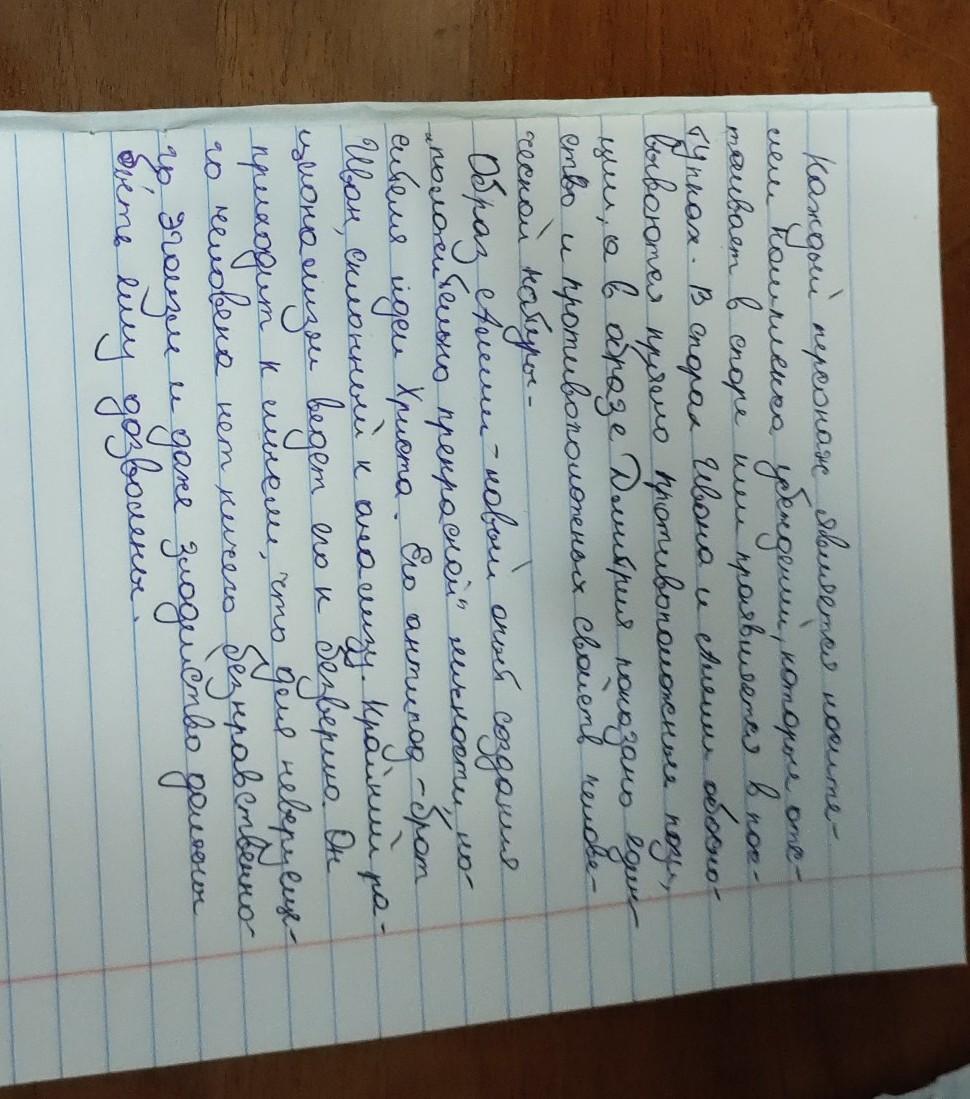 Каждый персонаж является носите-
лем комплекса убеждений, которые отс-
таивает в споре или проявляется в пос-
тупках. В спорах Ивана и Алеши обосно-
вываются прямо противоположные пози,
ции, а в образе Дмитрия показано един-
ство и противоположных свойств челове-
ческой натуры.
Образ Алеши - новый опыт создания
"положительно прекрасной" личности, но-
сителя идеи Христа. Его антипод - брат
Иван, склонный к анализу. Крайний ра-
ционализм ведет его к безверию. Он
приходит к мысли, что для неверующе-
го человека нет ничего безнравственно-
го эгоизм и даже злодейство должны
быть ему дозволены.